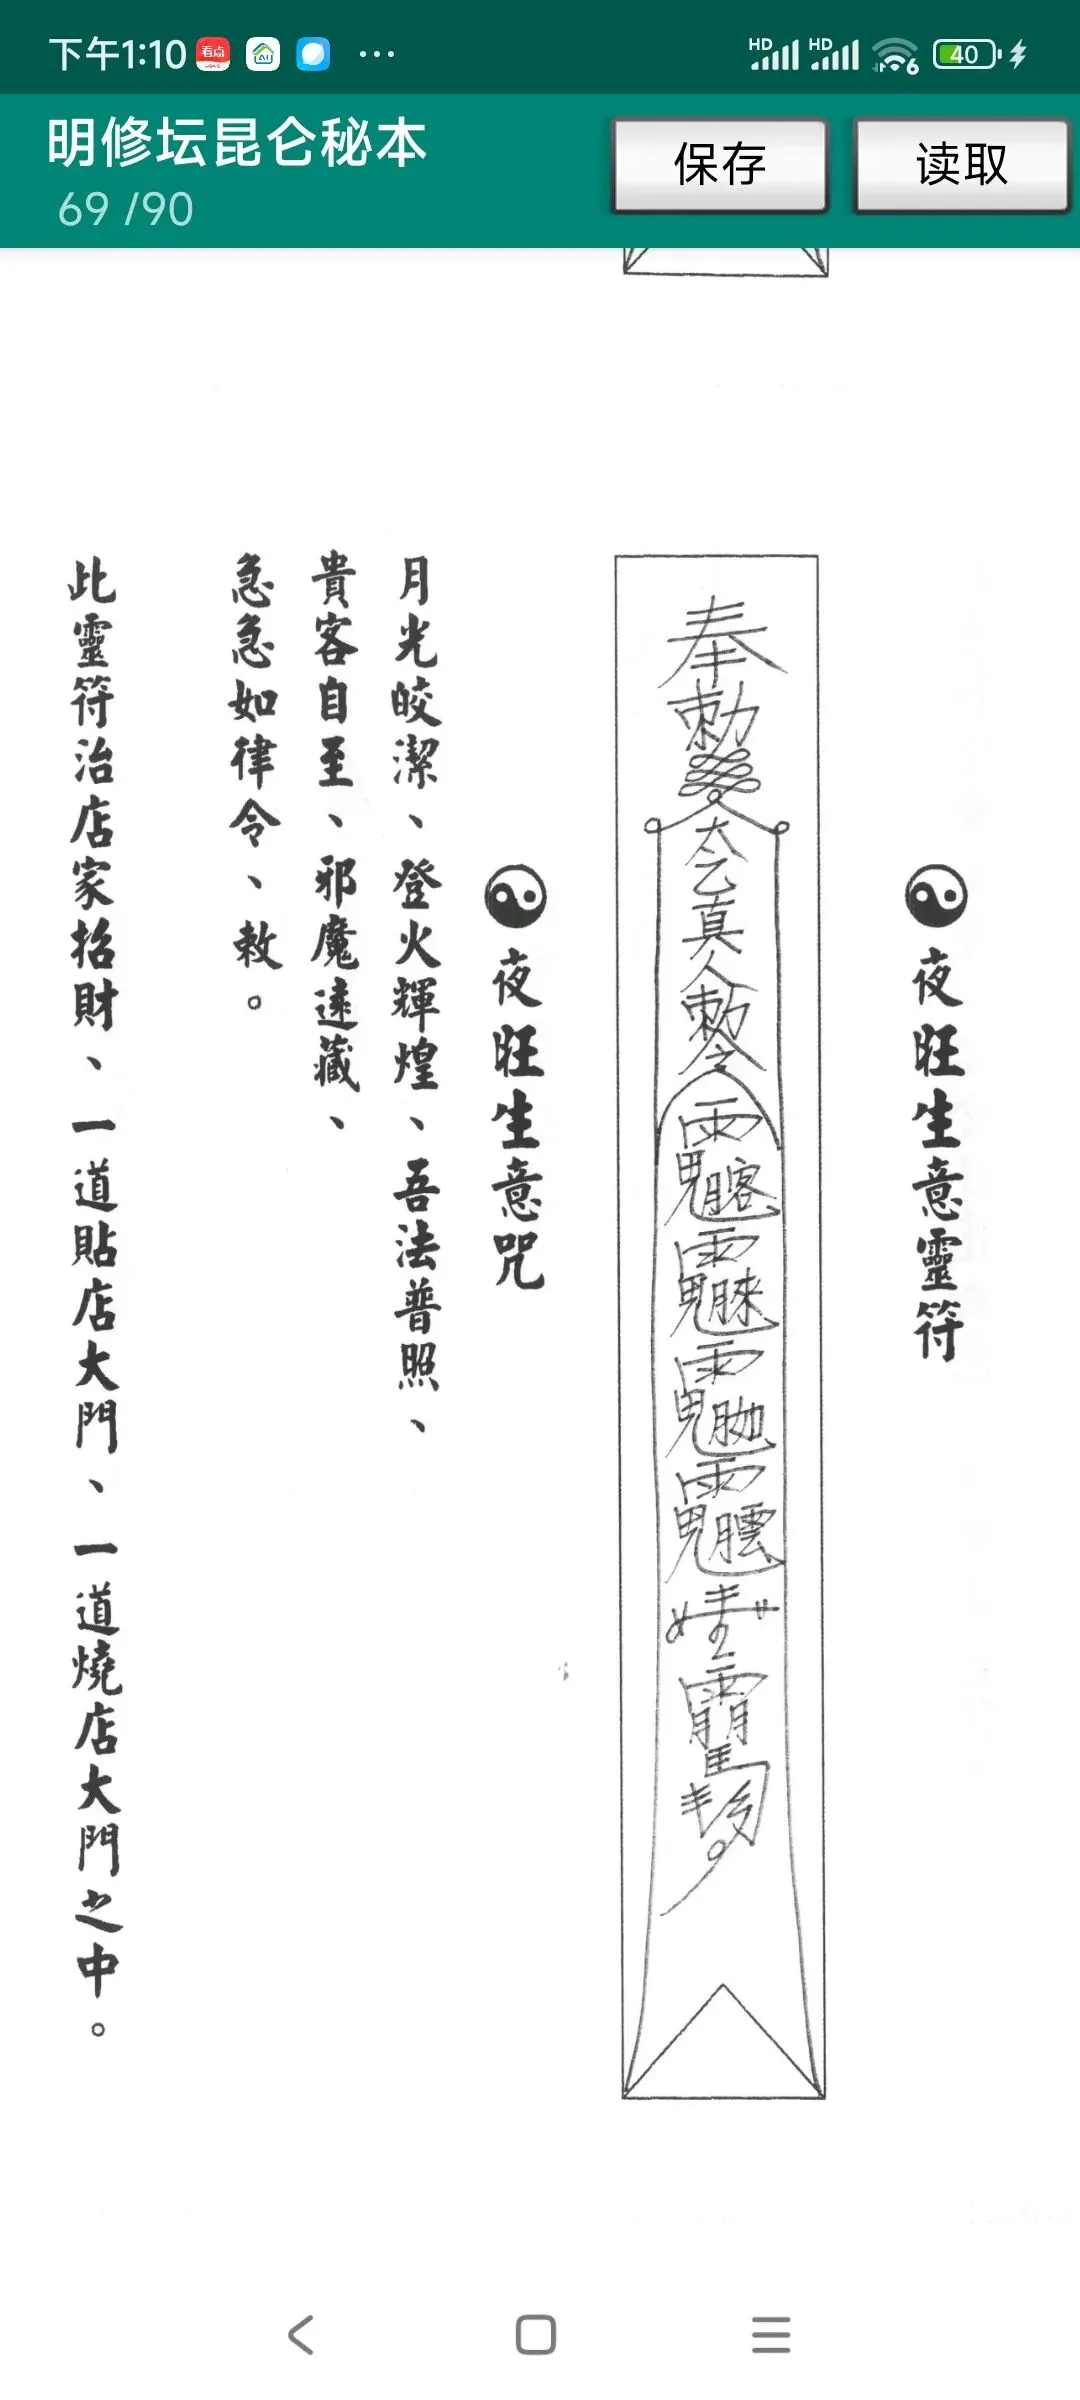 下午1:10
看点
AI
...
HD
HD
6
40
明修坛昆仑秘本
69 /90
保存
读取
夜旺生意靈符
奉
勅
太乙真人勅令
夜旺生意咒
月光皎潔、登火輝煌、吾法普照、
貴客自至、邪魔遠藏、
急急如律令、敕。
此靈符治店家招財、一道貼店大門、一道燒店大門之中。